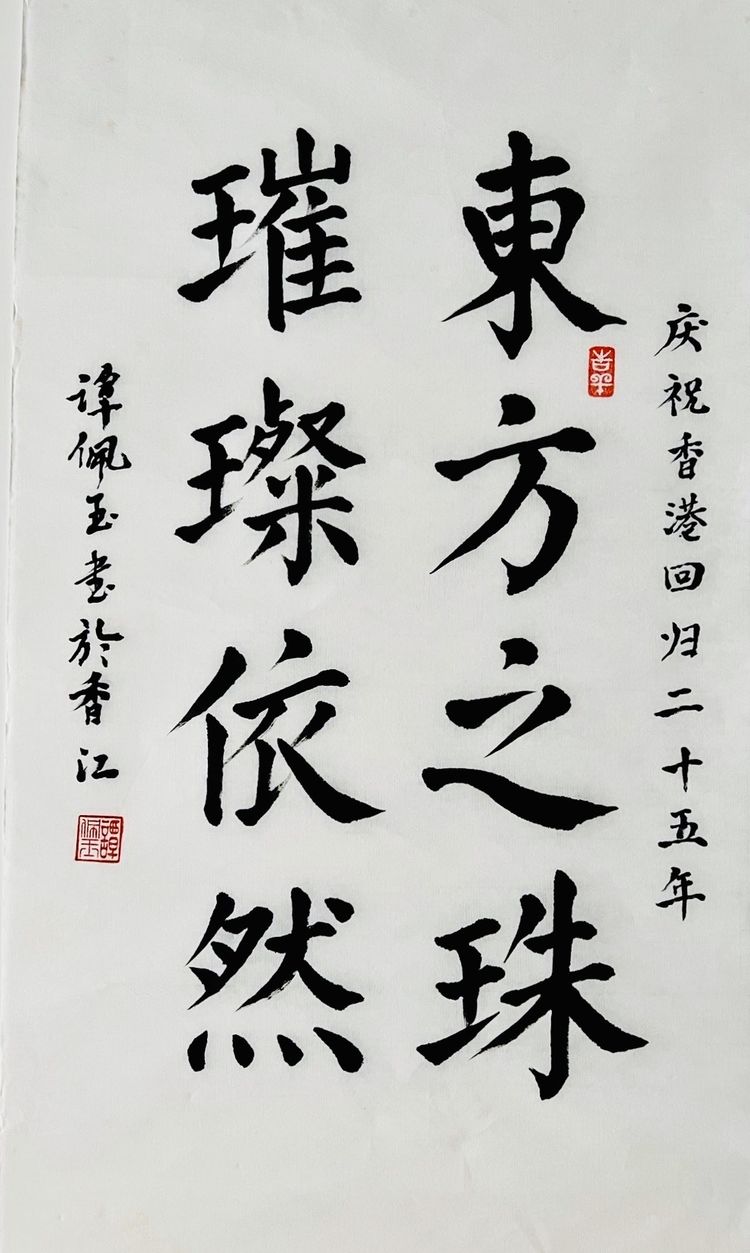 庆祝香港回归二十五年
東方之珠
璀璨依然
谭佩玉書於香江
譚佩玉